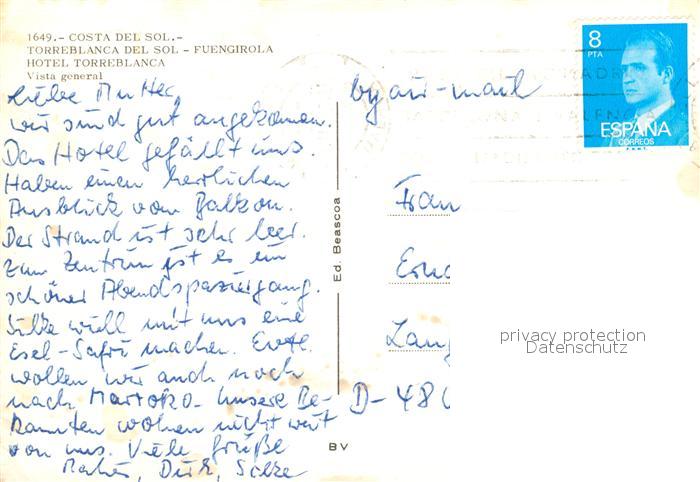 1649.- COSTA DEL SOL.-
TORREBLANCA DEL SOL - FUENGIROLA
HOTEL TORREBLANCA
Vista general
Liebe Mutter,
wir sind gut angekommen.
Das Hotel gefällt uns.
Haben einen herrlichen
Ausblick vom Balkon.
Der Strand ist sehr leer.
Zum Zentrum ist es ein
schöner Abendspaziergang.
Silke will mit uns eine
Esel-Safri machen. Evtl.
wollen wir auch noch
nach Marokko. Unsere Be-
kannten wohnen nicht weit
von uns. Viele Grüße
Dirk, Silke
Ed. Beascoa
BV
by air-mail
8
PTA
ESPAÑA
CORREOS
Frau
Lang
D-48
privacy protection
Datenschutz